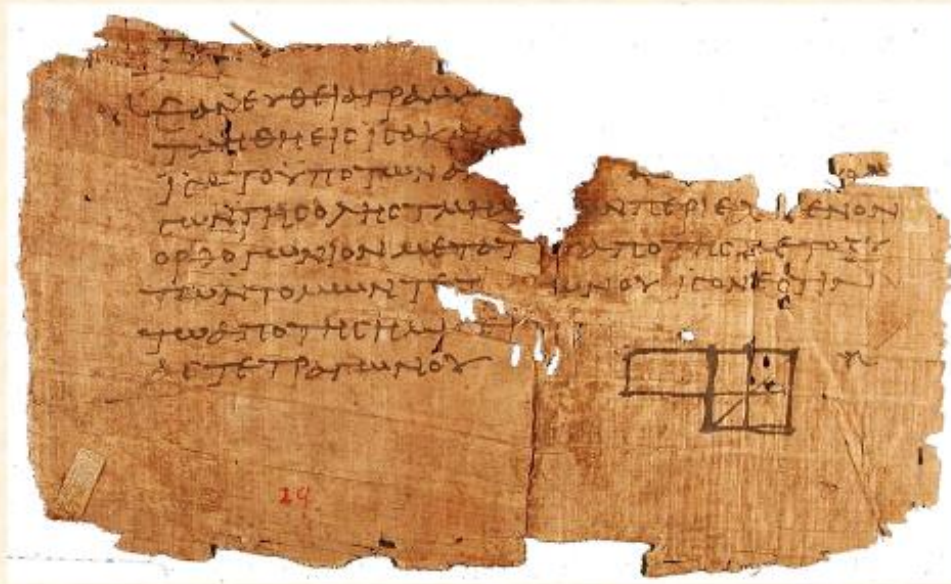 ΕΑΝ ΕΥΘΕΙΑ ΓΡΑΜΜ
ΤΜΗΘΗ ΕΙΣ ΙΣΑ ΚΑΙ Α
ΙΣΑ ΤΟ ΥΠΟ ΤΩΝ Α
ΣΩΝ ΤΗΣ ΟΛΗΣ ΤΜΗ ΩΝ ΠΕΡΙΕΧ ΜΕΝΟΝ
ΟΡΘΟΓΩΝΙΟΝ ΜΕΤΑ ΤΟΥ ΑΠΟ ΤΗΣ ΜΕΤΟΞΥ
ΤΩΝ ΤΟΜΩΝ ΤΕΤ ΩΝΟΥ ΙΣΟΝ ΕΣΤΙΝ
ΤΩ ΑΠΟ ΤΗΣ ΗΜΙΣΕΙ
ΑΣ ΤΕΤΡΑΓΩΝΟΥ
29